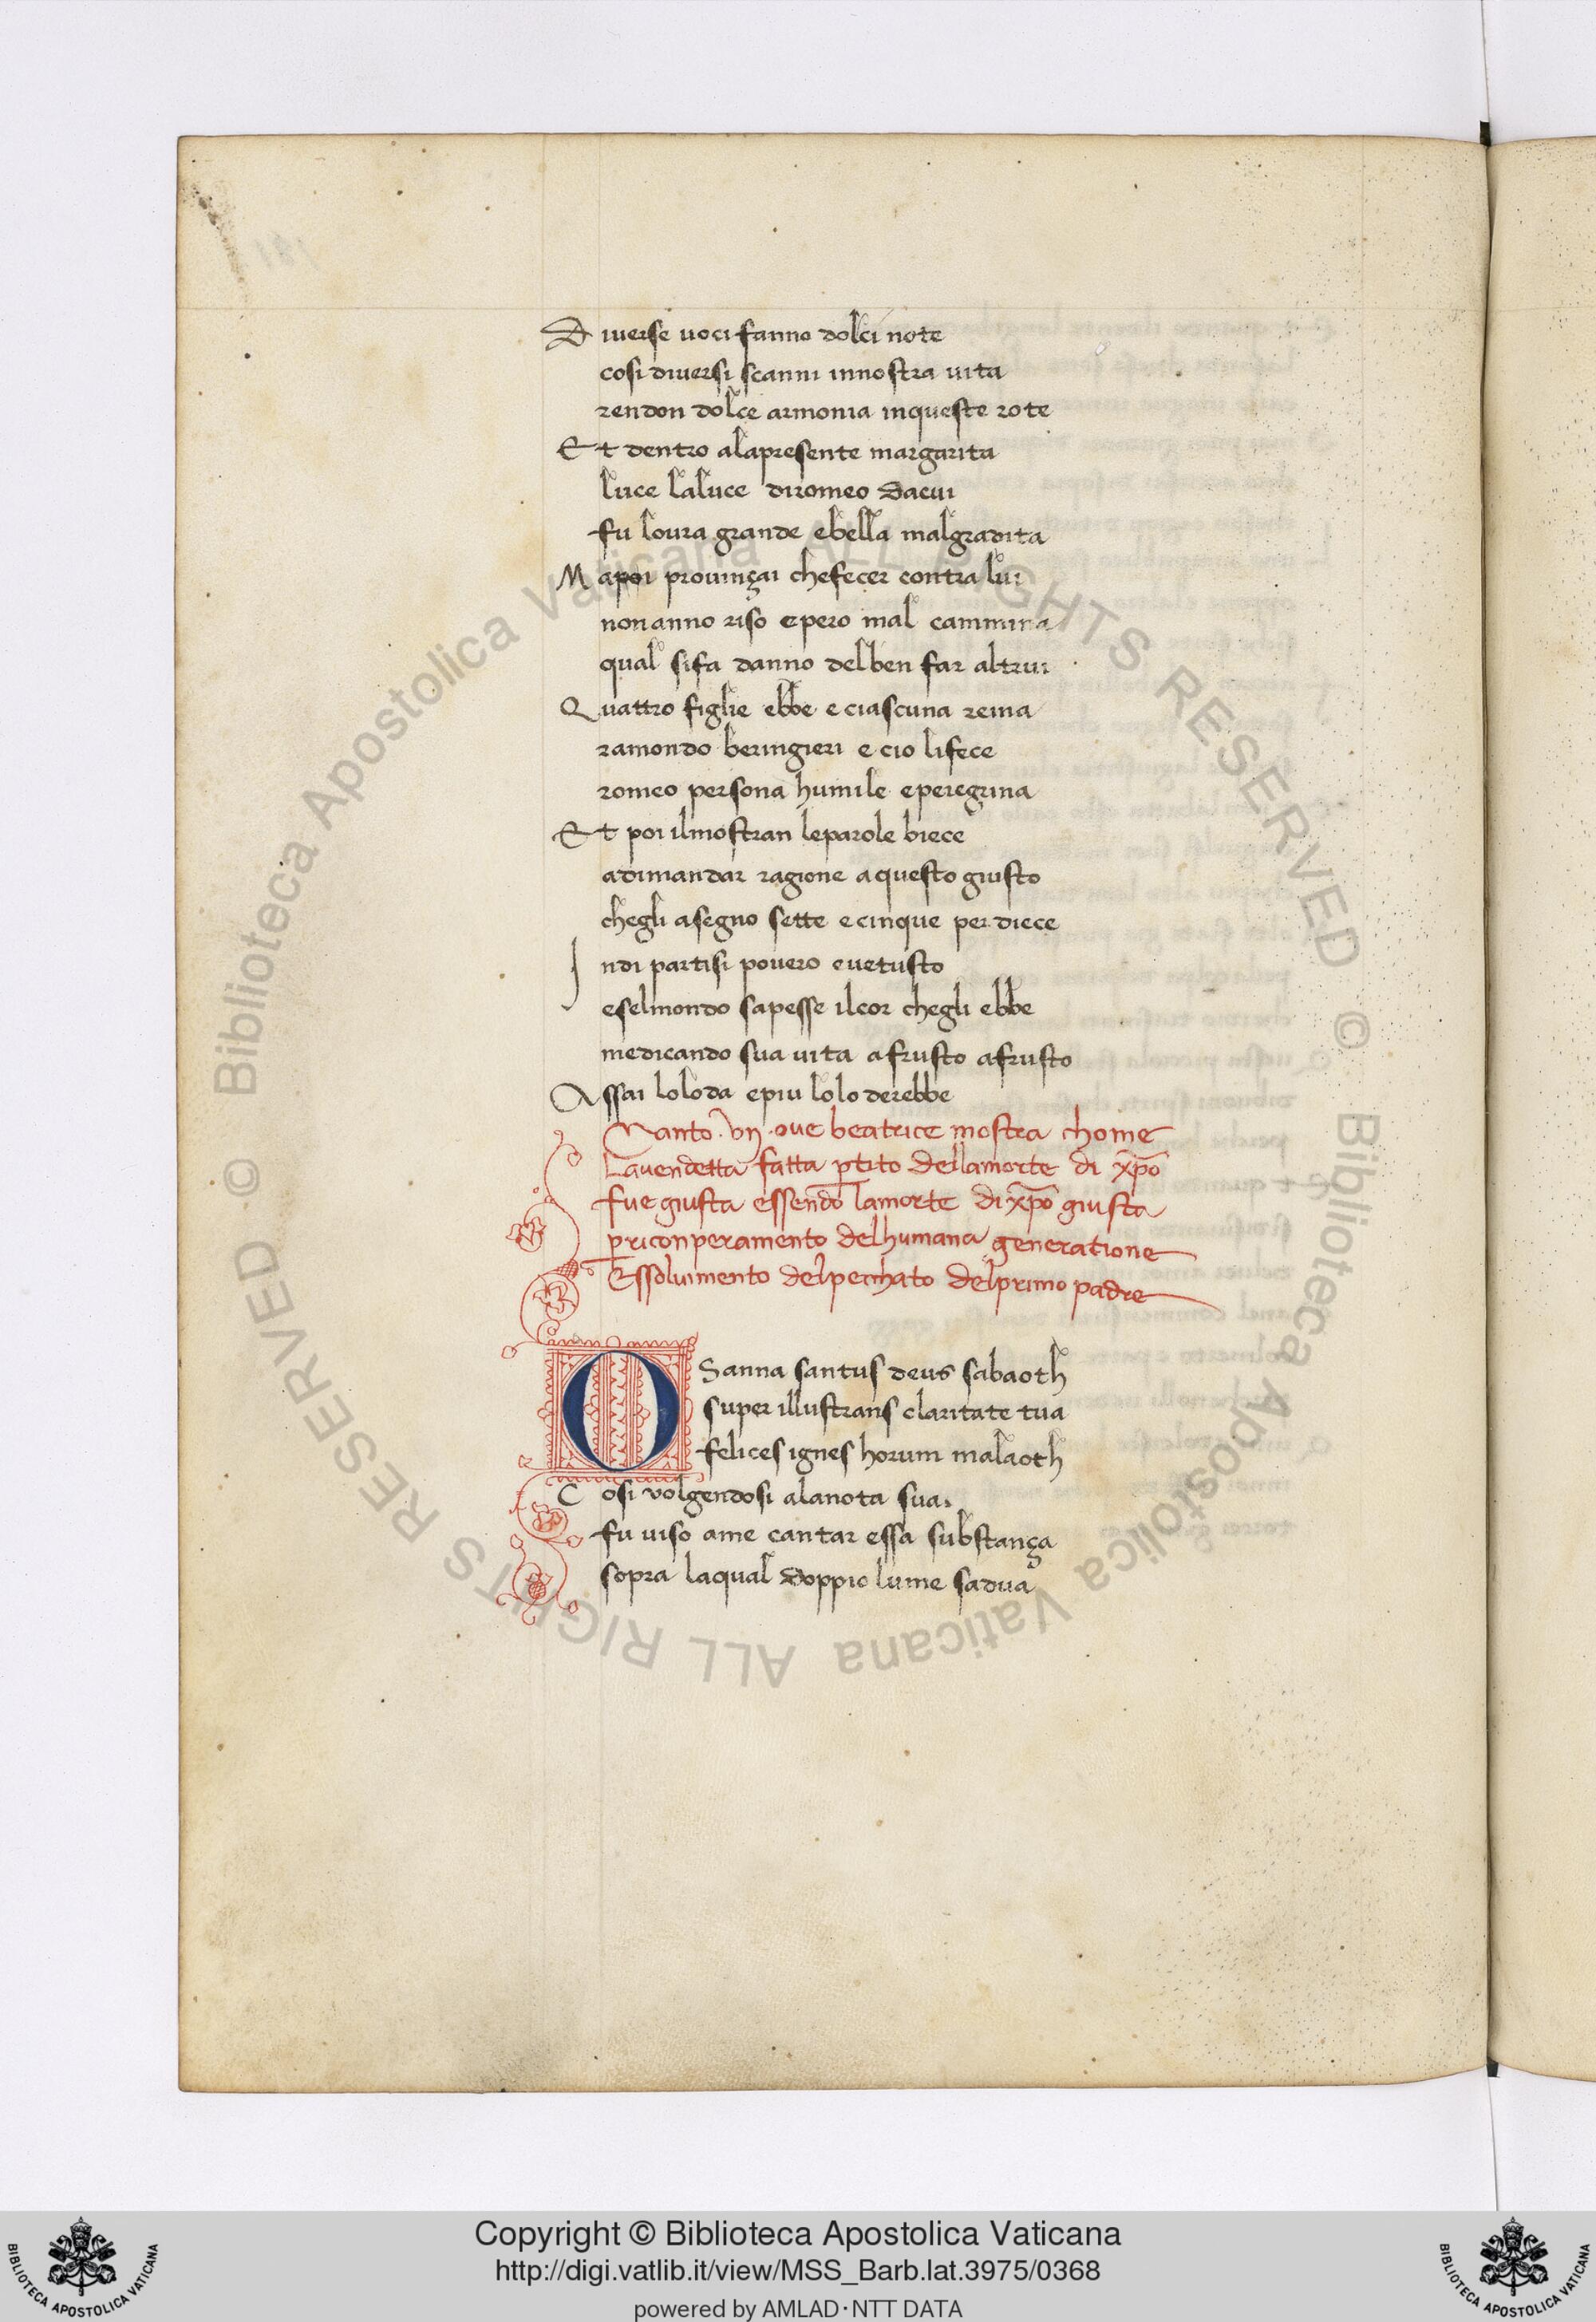 Diverse uoci fanno dolci note
cosi diuersi scanni innostra uita
rendon dolce armonia inqueste rote
Et dentro alapresente margarita
luce laluce diromeo dacui
fu loura grande ebella malgradita
Mapoi prouinçai chefecer contra lui
nonanno riso epero mal cammina
qual sifa danno delben far altrui
Quattro figlie ebbe eciascuna reina
ramondo beringieri ecio lifece
romeo persona humile eperegrina
Et poi ilmostran leparole biece
adimandar ragione aquesto giusto
chegli asegno sette ecinque per diece
Indi partisi pouero euetusto
eselmondo sapesse ilcor chegli ebbe
medicando sua uita afrusto afrusto
Assai loloda epiu lolo derebbe
Canto. vij. oue beatrice mostra chome
Lauendetta fatta ꝑtito dellamorte di xp̄o
fue giusta essendo lamorte di xp̄o giusta
ꝑriconperamento delhumana generatione
Essoluimento delpecchato delprimo padre
OSanna santus deus sabaoth
super illustrans claritate tua
felices ignes horum malaoth
Cosi volgendosi alanota sua.
fu uiso ame cantar essa substança
sopra laqual doppio lume sadua
© Biblioteca Apostolica Vaticana ALL RIGHTS RESERVED © Biblioteca Apostolica Vaticana ALL RIGHTS RESERVED
Copyright © Biblioteca Apostolica Vaticana
http://digi.vatlib.it/view/MSS_Barb.lat.3975/0368
powered by AMLAD·NTT DATA
BIBLIOTECA APOSTOLICA VATICANA
BIBLIOTECA APOSTOLICA VATICANA